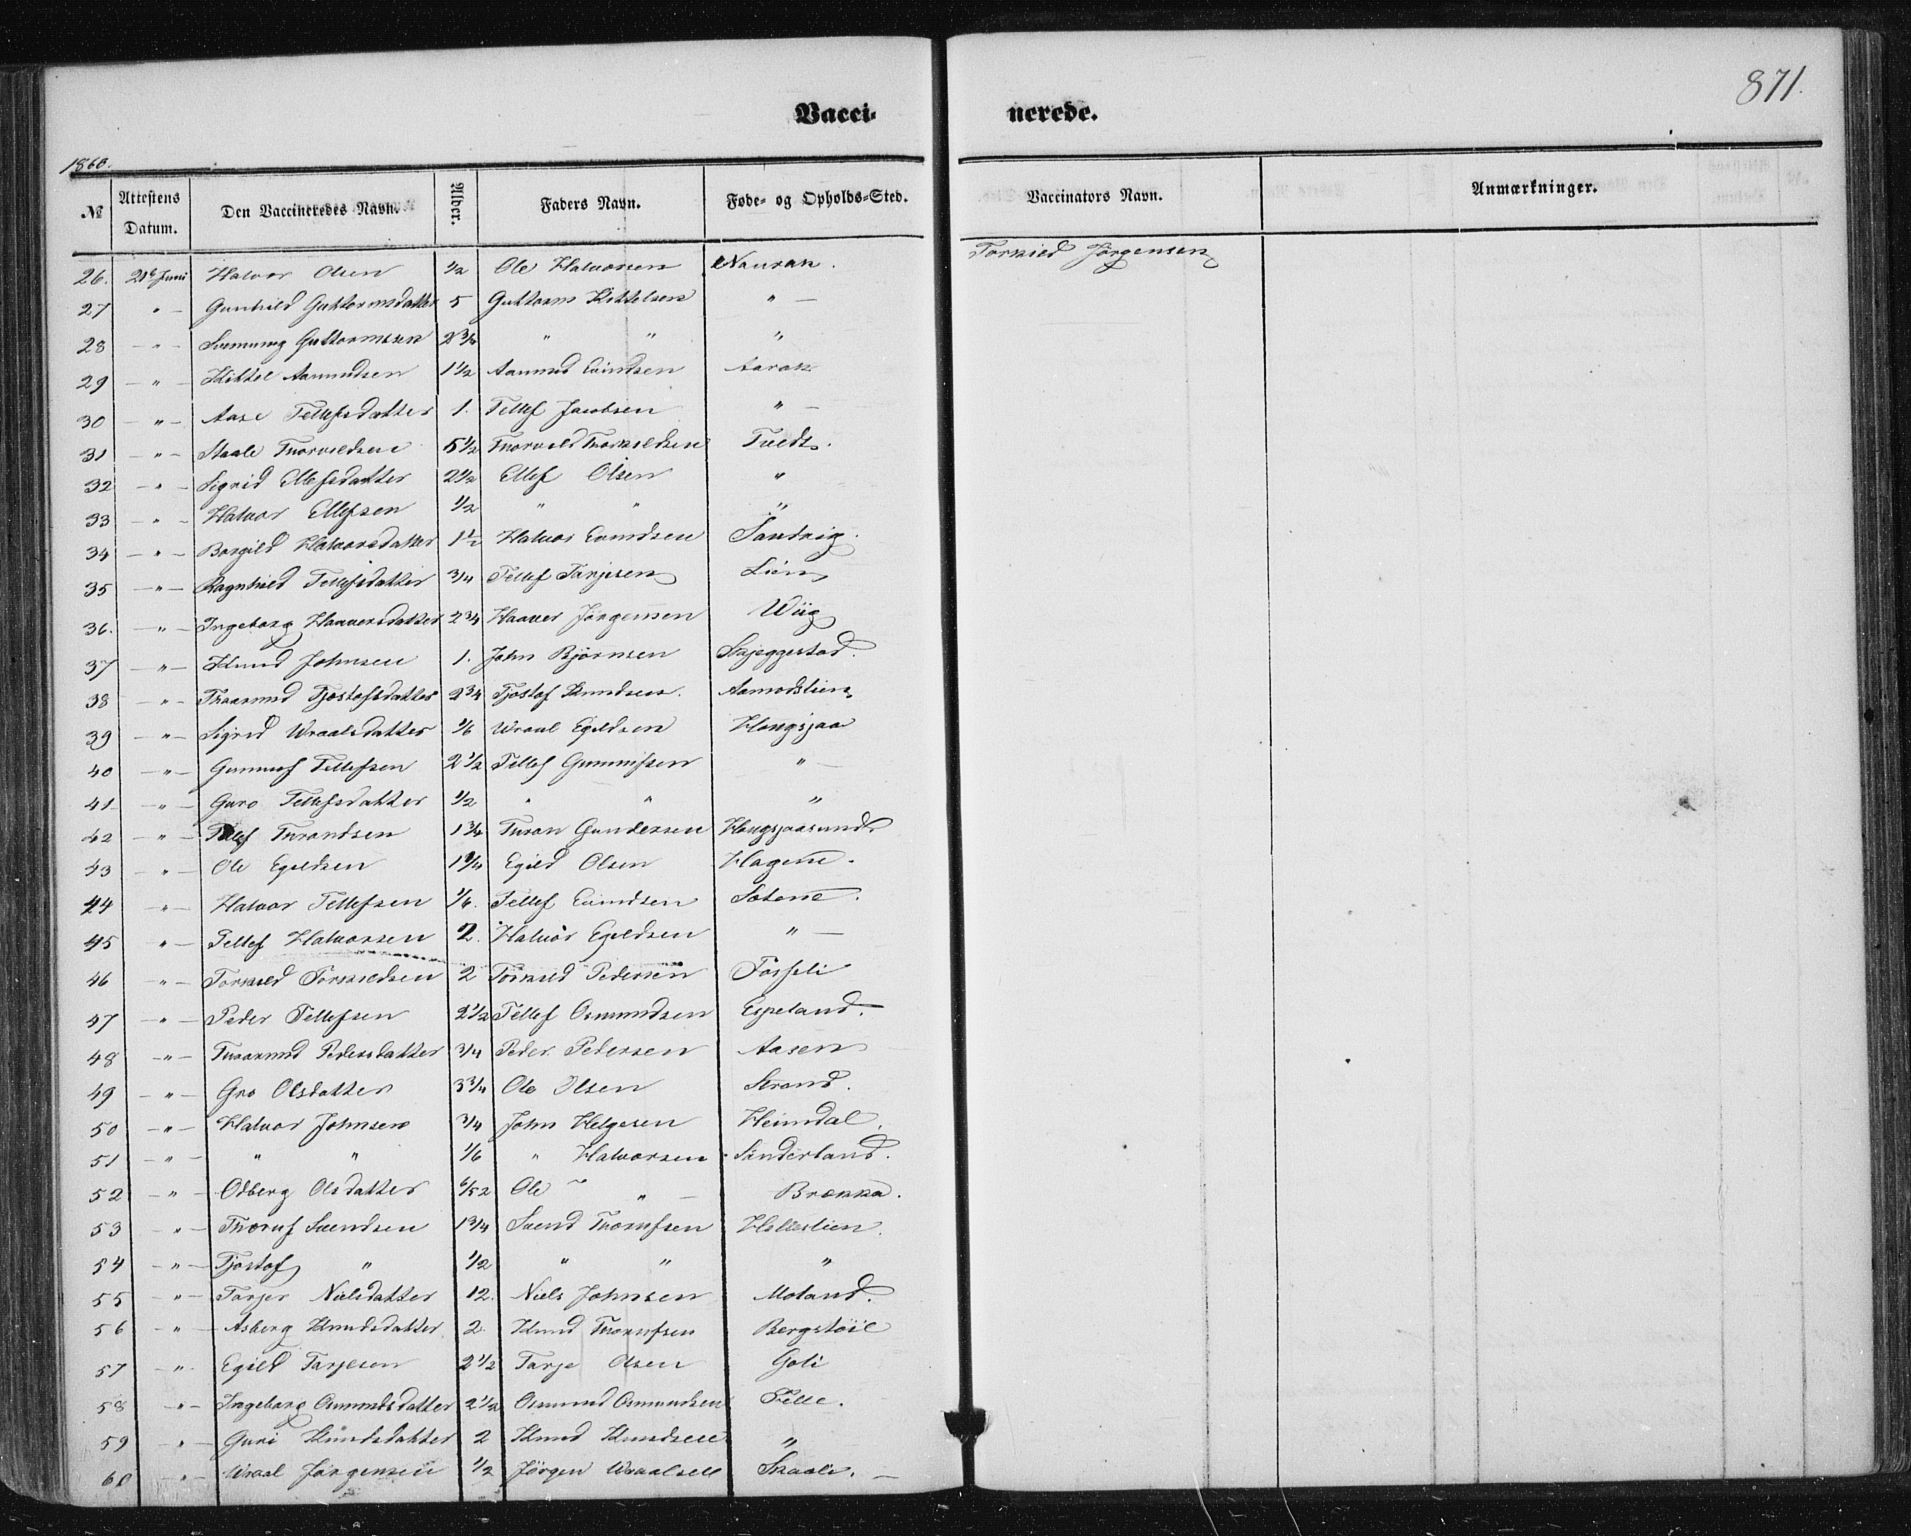 871.
Vacci- nerede.
1860.
№ Attestens Datum. Den Vaccineredes Navn. Alder. Faders Navn. Føde- og Opholds-Sted. Vaccinators Navn. Anmærkninger.
26. 21e Juni Halvor Olsen 1/2 Ole Halvorsen Naurak. Torkild Jørgensen
27 " — Gunhild Guttormsdatter 5 Guttorm Kittelsen " —
28 — " — Guttormsen 2 3/4 " " "
29 — " — Kittel Aamundsen 1 1/2 Aamund Evindsen Aarak
30 — " — Aase Tellefsdatter 1. Tellef Jacobsen " —
31 — " — Staale Thorvildsen 5 1/2 Tvedt.
32 — " — Sigrid Ellefsdatter 2 1/2 Ellef Olsen "
33 — " — Halvor Ellefsen 1/2 " " "
34 — " — Borgild Halvorsdatter 1 1/2 Halvor Evindsen Sandvig.
35 — " — Ragnhild Tellefsdatter 3/4 Tellef Tarjesen Lien
36. — " — Ingeborg Haaversdatter 2 3/4 Haaver Jørgensen Wiig
37 — " — Knud Johnsen 1. John Bjørnsen Skjeggestad.
38 — " — Thaarand Tjøstofsdatter 2 3/4 Tjøstof Knudsen. Aamodslien
39 — " — Sigrid Wraalsdatter 1/6 Wraal Egildsen Hougsjaa
40 — " — Gunnuf Tellefsen 2 1/2 Tellef Gunnufsen " —
41 — " — Guro Tellefsdatter 1/2 " " "
42 — " — Tellef Throndsen 1 3/4 Thron Gundersen Hougsjaasund.
43 — " — Ole Egildsen 1 1/4 Egild Olsen Hagene.
44 — " — Halvor Tellefsen 1/6. Tellef Evindsen Sotene.
45 " — Tellef Halvorsen 2. Halvor Egildsen " —
46 — " — Torkild Torkildsen 2 Torkild Pedersen Fosseli
47 — " — Peder Tellefsen 2 1/2 Tellef Osmundsen Espeland.
48 — " — Thaarand Pedersdatter 3/4 Peder Pedersen Aasen
49 — " — Gro Olsdatter 3 3/4 Ole Olsen Strand.
50 — " — Halvor Johnsen 3/4 John Helgesen Heimdal.
51 — " — " " 1/6 " Halvorsen Sønderland.
52 — " — Odberg Olsdatter 6/52 Ole " — Brokka.
53 " — Thoruf Svendsen 1 3/4 Svend Thorufsen Hellestien.
54 — " — Tjøstof " 1/2 " " "
55 — " — Tarjer Nielsdatter 12. Niels Johnsen Moland.
56 " — Asberg Knudsdatter 2. Knud Thorufsen Bergstøil
57 — " — Egild Tarjesen 2 1/2 Tarje Olsen Goli
58 — " — Ingeborg Osmundsdatter 2 1/2 Osmund Osmundsen Felle.
59 " — Guri Knudsdatter 2 Knud Knudsen "
60 — " — Wraal Jørgensen 1/2 Jørgen Wraalsen Skaali. —